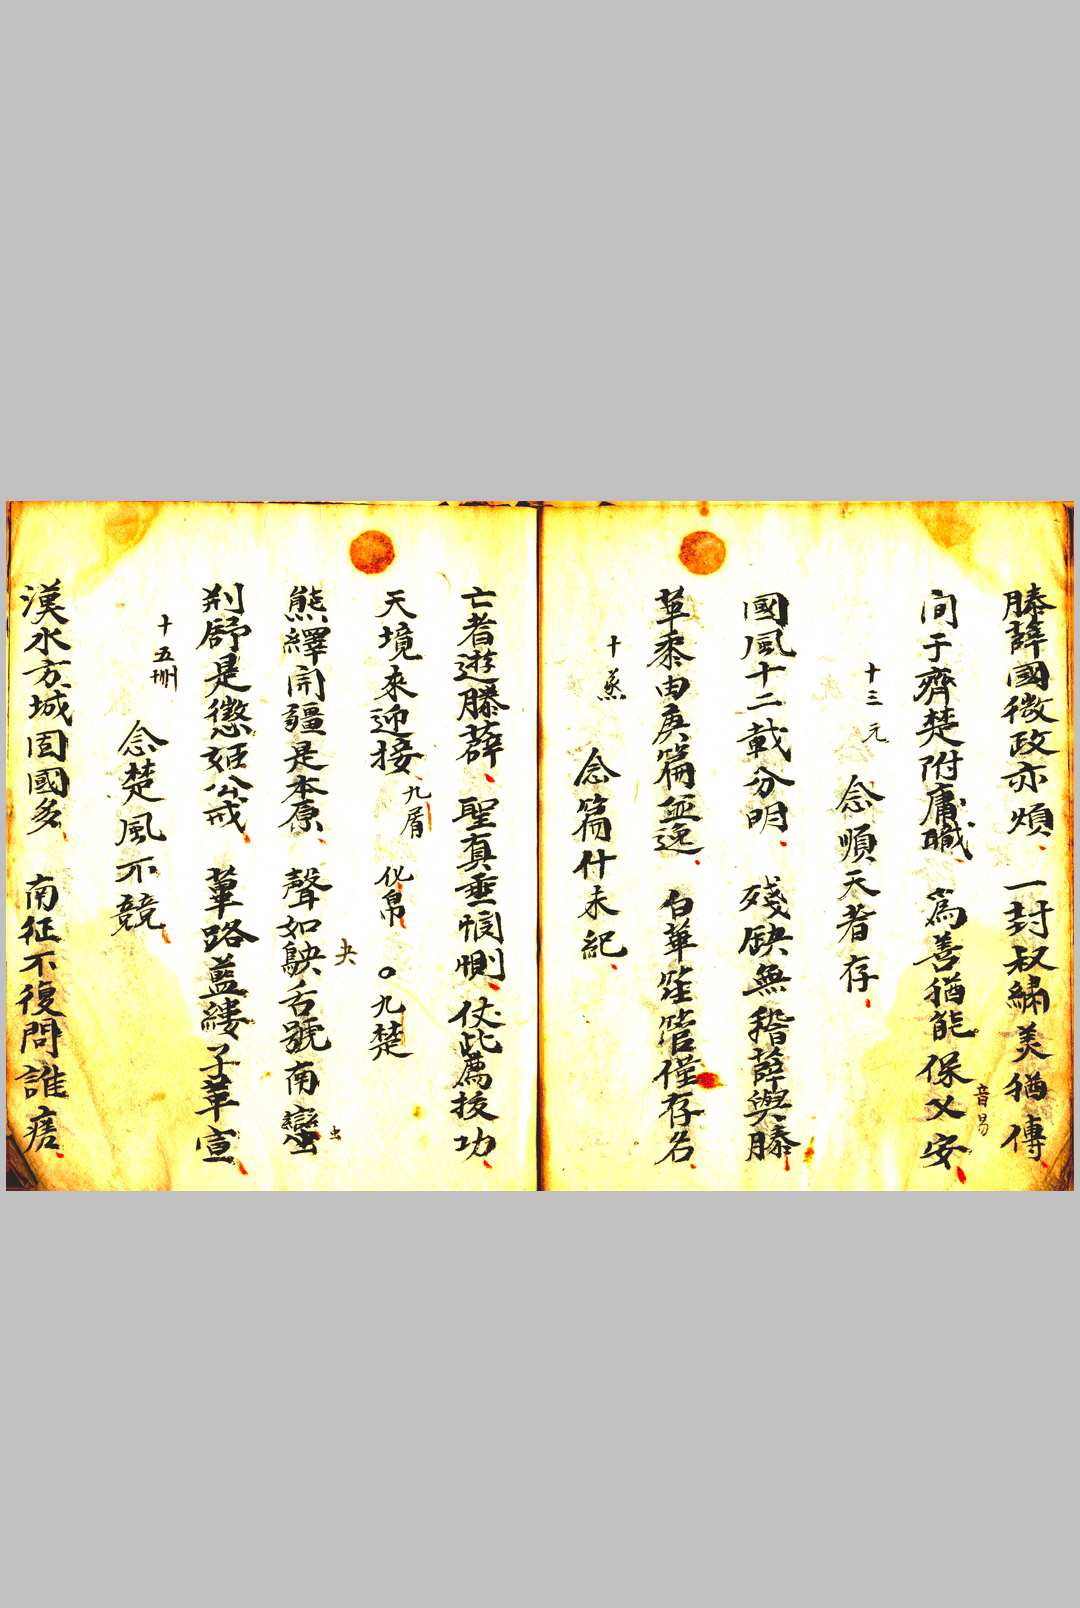 滕薛國微政亦煩 一封叔繡美猶傳
间于齊楚附庸職 為善猶能保乂安
音易
十三元
念順天者存
國風十二載分明 殘缺無稽薛與滕
草黍由庚篇並逸 白華笙管僅存名
十蒸
念篇什未紀
亡者遊滕薛 聖真垂惻惻 仗此薦拔功
天境來迎接 化帛 ○九楚
九屑
熊繹開疆是本原 聲如鴃舌號南蠻
夬
虫
荆舒是懲姬公戒 蓽路藍縷子革宣
十五刪
念楚風不競
漢水方城固國多 南征不復問誰瘥